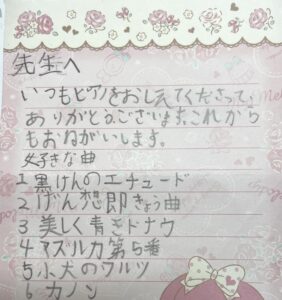 先生へ
いつもピアノをおしえてくださって、
ありがとうございます。これから
もおねがいします。
好きな曲
1 黒けんのエチュード
2 げん想即きょう曲
3 美しく青きドナウ
4 マズルカ第5番
5 小犬のワルツ
6 カノン